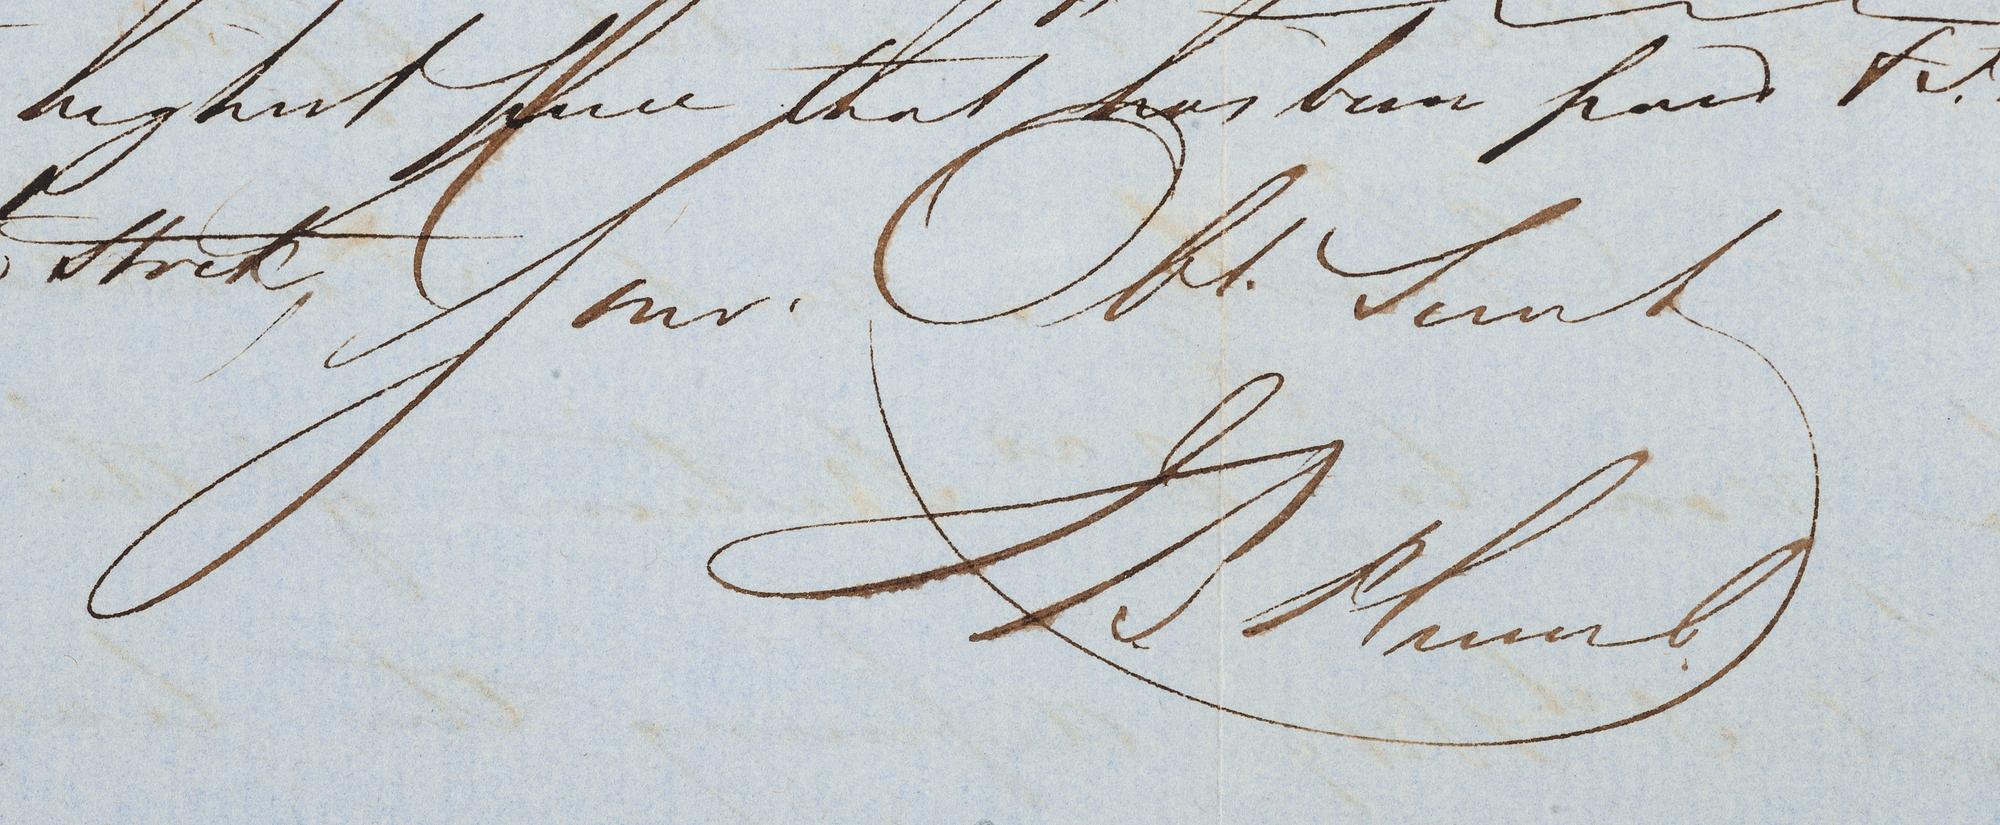 highest price that has been paid for
Stock,
Your Obt. Servt
J B Plumb